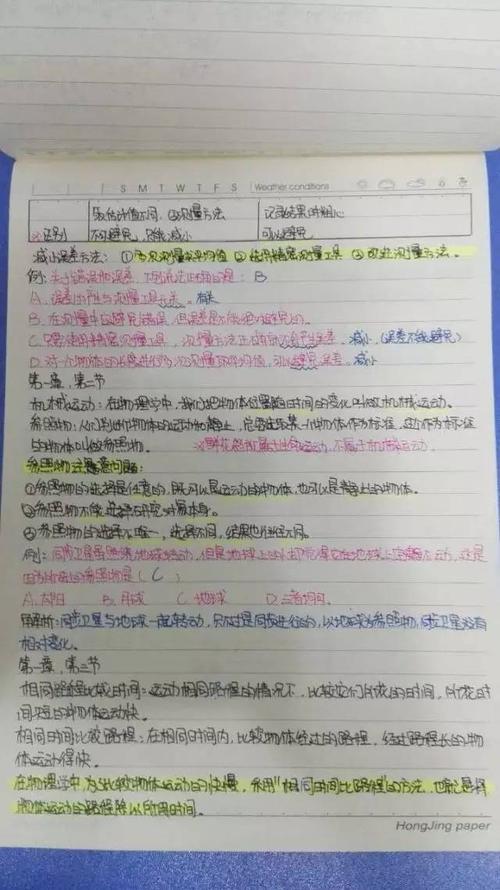 S M T W T F S Weather conditions
取估计值不同，②测量方法 记录结果时粗心
※区别 不可避免，只能减小 可以避免
减小误差方法：①多次测量求平均值 ②使用精密测量工具 ③改进测量方法。
例：关于错误和误差，下列说法正确的是：B
A．误差的产生与测量工具无关。有关
B．在测量中应避免错误，但误差是不可能绝对避免的。
C．只要使用精密测量工具，测量方法正确 误差。减小（误差不能避免）
D．对一个物体的长度进行多次测量取平均值，可以避免误差。减小
第一章，第二节
机械运动：在物理学中，我们把物体位置随时间的变化叫做机械运动。
参照物：人们判断物体的运动和静止，总要选取某一物体作为标准，这个作为标准
的物体叫做参照物。 ※ 运动，不属于机械运动．
参照物注意问题：
①参照物的选择是任意的，既可以是运动的物体，也可以是静止的物体。
②参照物不能选择研究对象本身。
③参照物的选择不唯一，选择不同，结果也往往不同。
例：同步卫星虽然绕地球转动，但是地球上的人却觉得它在地球上空静止不动，这是
因为所选的参照物是（C）
A．太阳 B．月球 C．地球 D．三者均可．
解析：同步卫星与地球一起转动，只不过是同步进行的，以地球为参照物，同步卫星没有
相对变化。
第一章，第三节
相同路程比较时间：运动相同路程的情况下，比较它们所花的时间，所花时
间短的物体运动快。
相同时间比较路程：在相同时间内，比较物体经过的路程，经过路程长的物
体运动得快。
在物理学中，为了比较物体运动的快慢，采用“相同时间比路程”的方法，也就是将
物体运动的路程除以所用时间。
HongJing paper